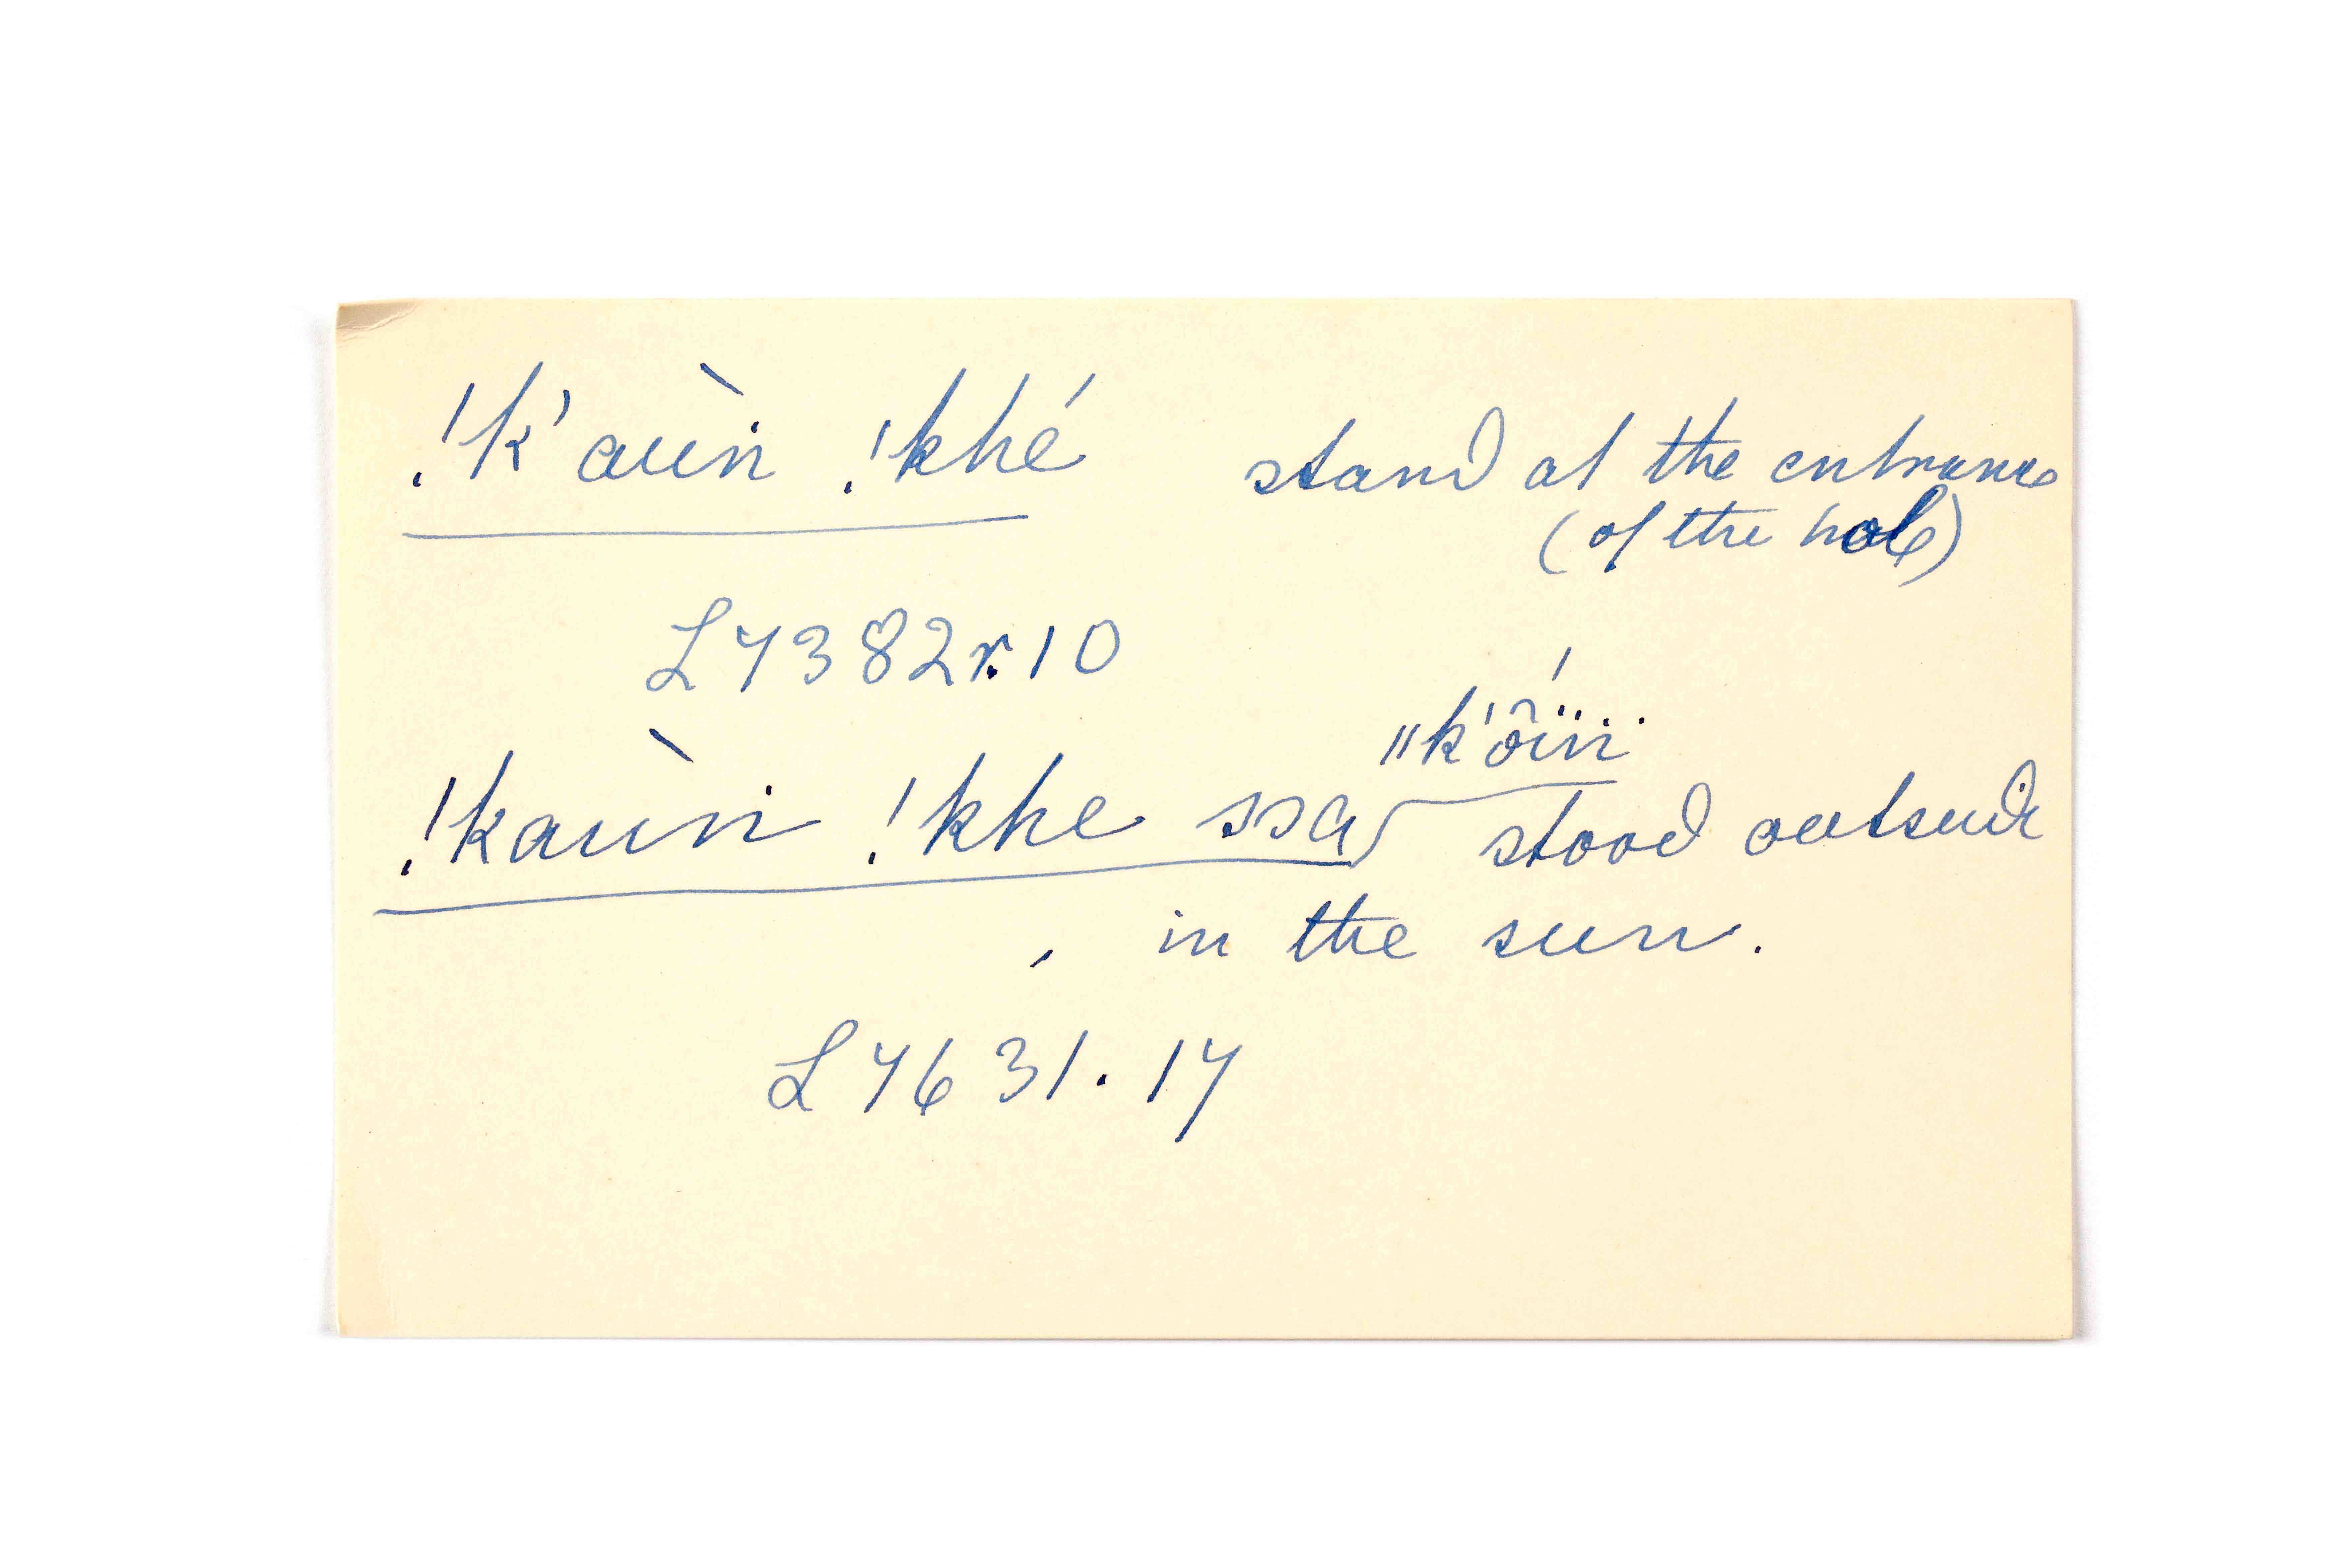 !k'auìn !khé stand at the entrance
(of the hole)
L 7382r.10
||k'ôïn
!kauìn !khe ssa stood outside
in the sun.
L 7631.17